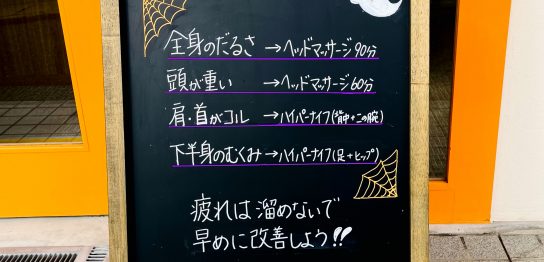 全身のだるさ →ヘッドマッサージ90分
頭が重い →ヘッドマッサージ60分
肩・首がコル →ハイパーナイフ(背中+二の腕)
下半身のむくみ→ハイパーナイフ(足+ヒップ)
疲れは溜めないで
早めに改善しよう!!